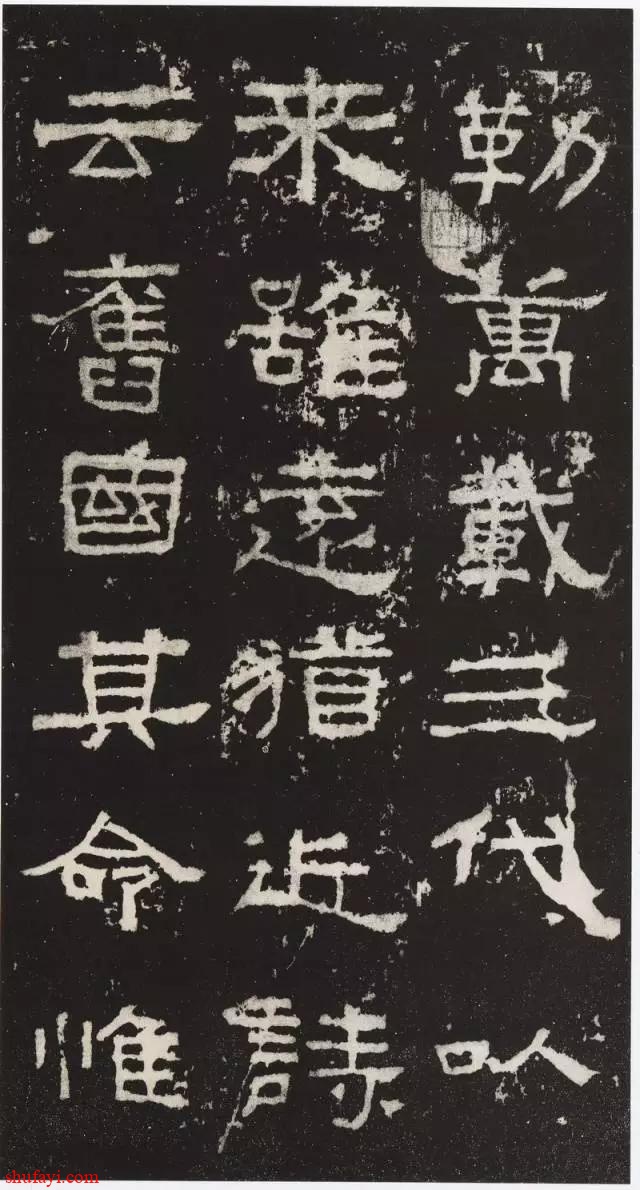 勒萬載三代以
來雖遠猶近詩
云舊國其命惟
shufayi.com